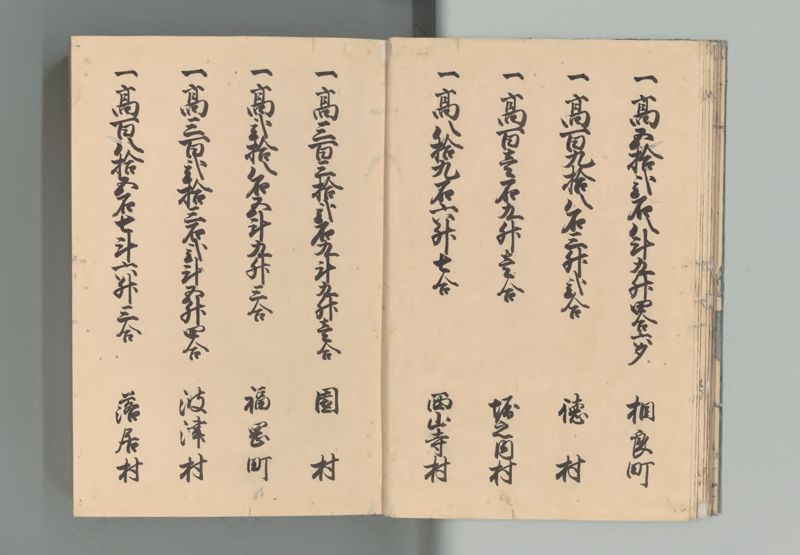 一高五拾弐石八斗九升四合六夕 相良町
一高百九拾八石三升弐合 徳村
一高百壱石九升壱合 堀之内村
一高八拾九石六升七合 西山寺村
一高三百三拾弐石九斗九升壱合 園村
一高弐拾八石五斗九升三合 福岡町
一高三百弐拾三石弐斗五升四合 波津村
一高百八拾五石七斗六升三合 落居村